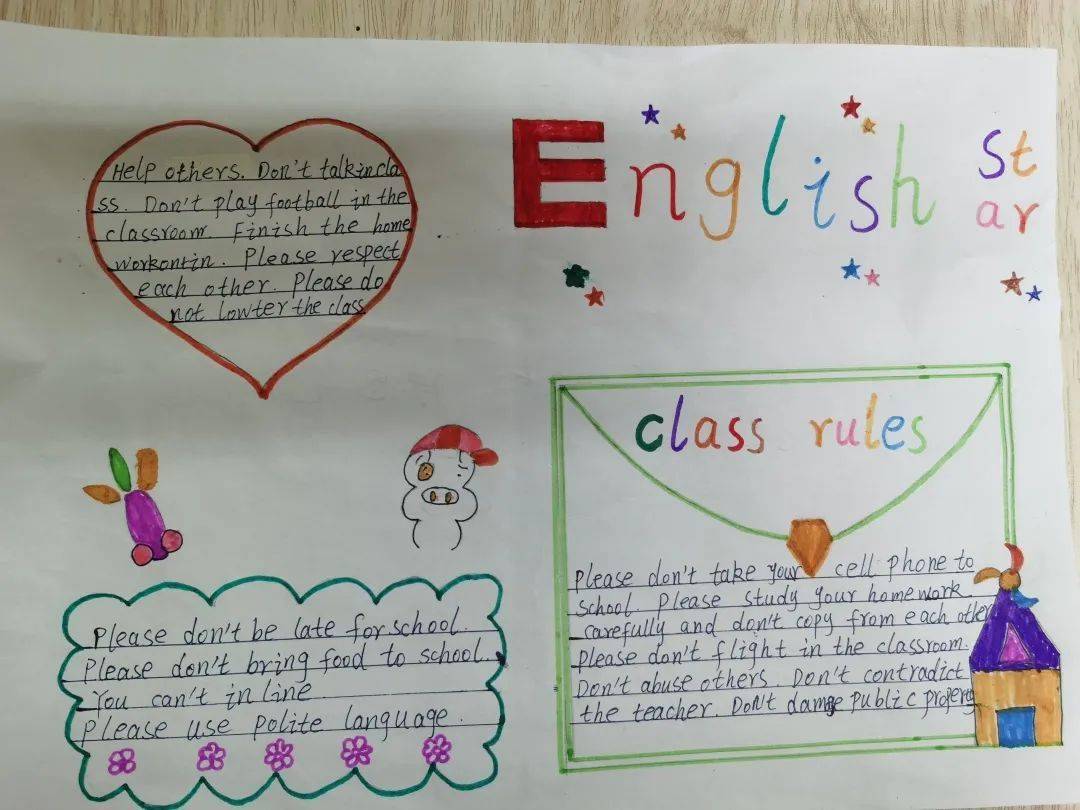 English
St
ar
Help others. Don't talkincla
ss. Don't play football in the
classroom. Finish the home
workontin. Please respect
each other. Please do
not lowter the class
class rules
Please don't take your cell phone to
school. Please study your homework
carefully and don't copy from each other
please don't flight in the classroom.
Don't abuse others. Don't contradict
the teacher. Don't damage public property
Please don't be late for school.
Please don't bring food to school.
You can't in line
Please use polite language.